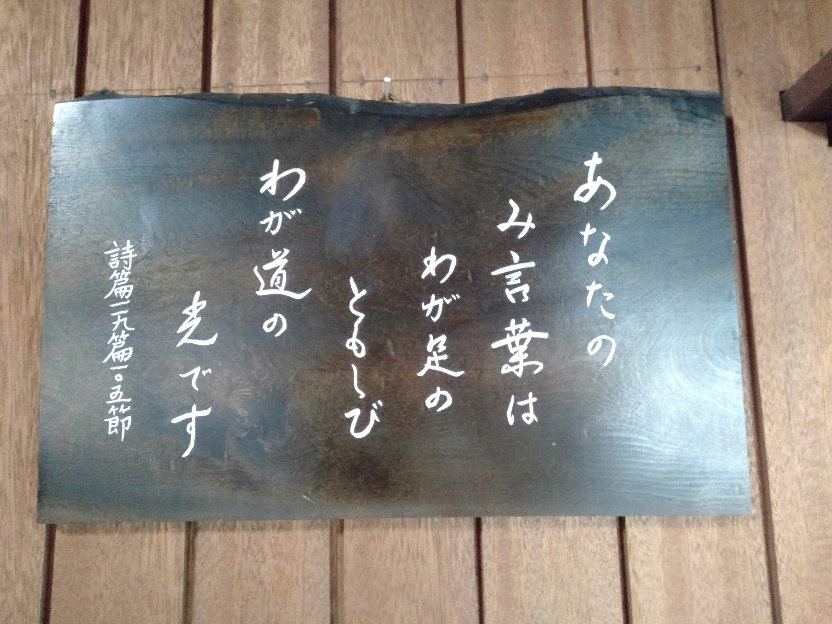 あなたの
み言葉は
わが足の
ともしび
わが道の
光です
詩篇一一九篇一〇五節